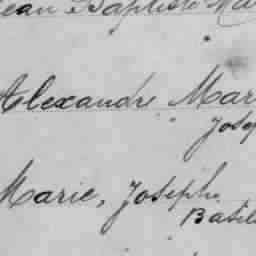 Jean Baptiste Ma
Alexandre Mar
Josep
Marie, Joseph
Basil